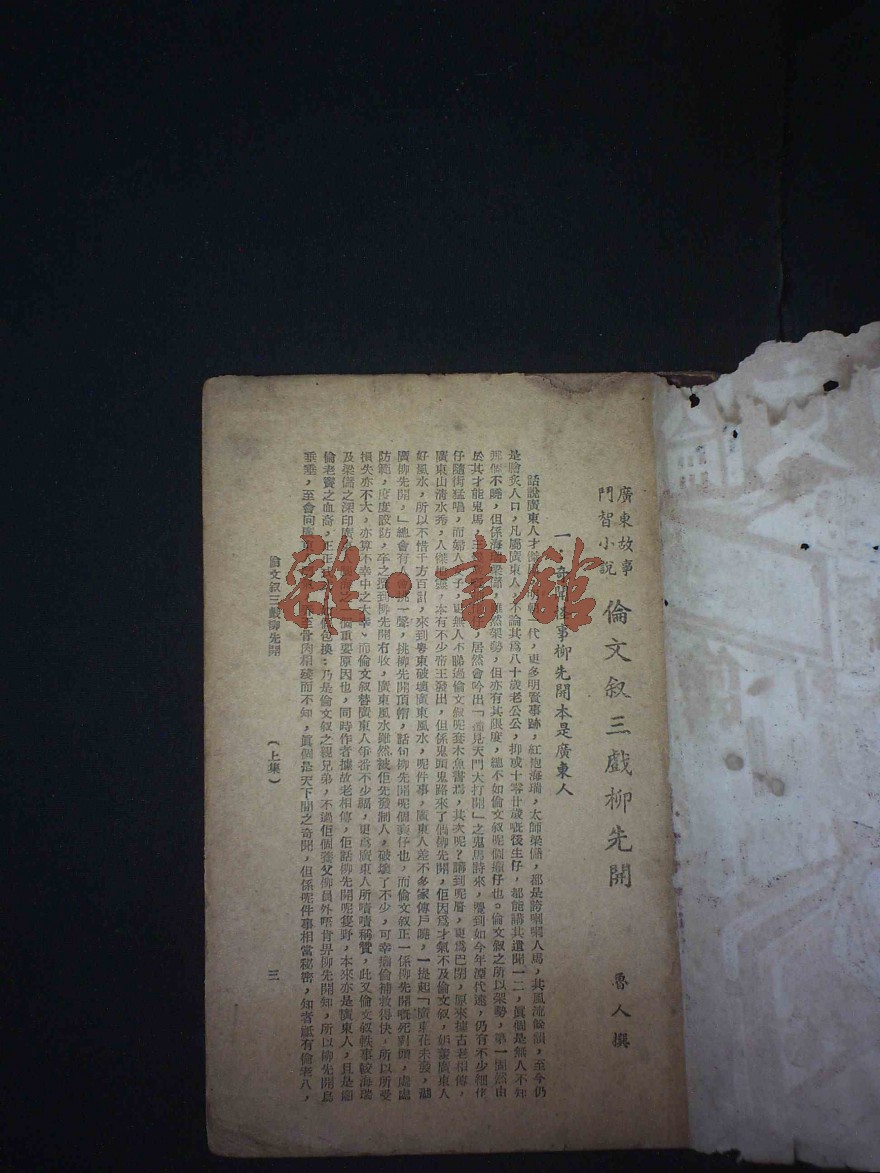 廣東故事
鬥智小說
倫文叙三戲柳先開
魯人撰
一:奇聞怪事柳先開本是廣東人
話說廣東人才傑出,代,更多明賢事跡,紅袍海瑞,太師梁儲,都是誇喇喇人馬,其風流餘韻,至今仍
是膾炙人口,凡屬廣東人,不論其爲八十歲老公公,抑或十零廿歲嘅後生仔,都能講其遺聞一二,眞個是無人不知
那個不曉,但係海瑞梁儲,雖然架勢,但亦有其限度,總不如倫文叙呢個癲仔也。倫文叙之所以架勢,第一固然由
於其才能鬼馬,居然會吟出「遠見天門大打開」之鬼馬詩來,覺到如今年湮代遠,仍有不少
仔隨街猛唱,而婦人女子,更無人不睇過倫文叙呢套木魚書,其次呢?講到呢層,更爲巴閉,原來據古老相傳,
廣東山清水秀,人傑地靈,本有不少帝王發出,但係鬼頭鬼路來了個柳先開,佢因爲才氣不及倫文叙,奶廣東人
好風水,所以不惜千方百計,來到粵東破壞廣東風水,呢件事,廣東人差不多家傳戶曉,一提起「廣東花未發,湖
廣柳先開,」總會有人挑一聲,挑柳先開頂帽,話句柳先開呢個衰仔也,而倫文叙正一係柳先開嘅死對頭,處處
防範,度度設防,卒之搵到柳先開冇收,廣東風水雖然被佢先發制人,破壞了不少,可幸癲倫補救得快,所以所受
損失亦不大,亦算不幸中之大幸、而倫文叙替廣東人爭番不少福,更爲廣東人所嘖嘖稱贊,此又倫文叙軼事較海瑞
及梁儲之深印廣之重要原因也,同時作者據故老相傳,佢話柳先開呢隻野,本來亦是廣東人,且是
倫老賣之血裔,正正包換:乃是倫文叙之親兄弟,不過佢個養父柳員外唔肯畀柳先開知,所以柳先開烏
垂垂,至會向廣至骨肉相殘而不知,眞個是天下間之奇聞,但係呢件事相當秘密,知者祗有倫老八,
倫文叙三戲柳先開
(上集)
三
雜·書館